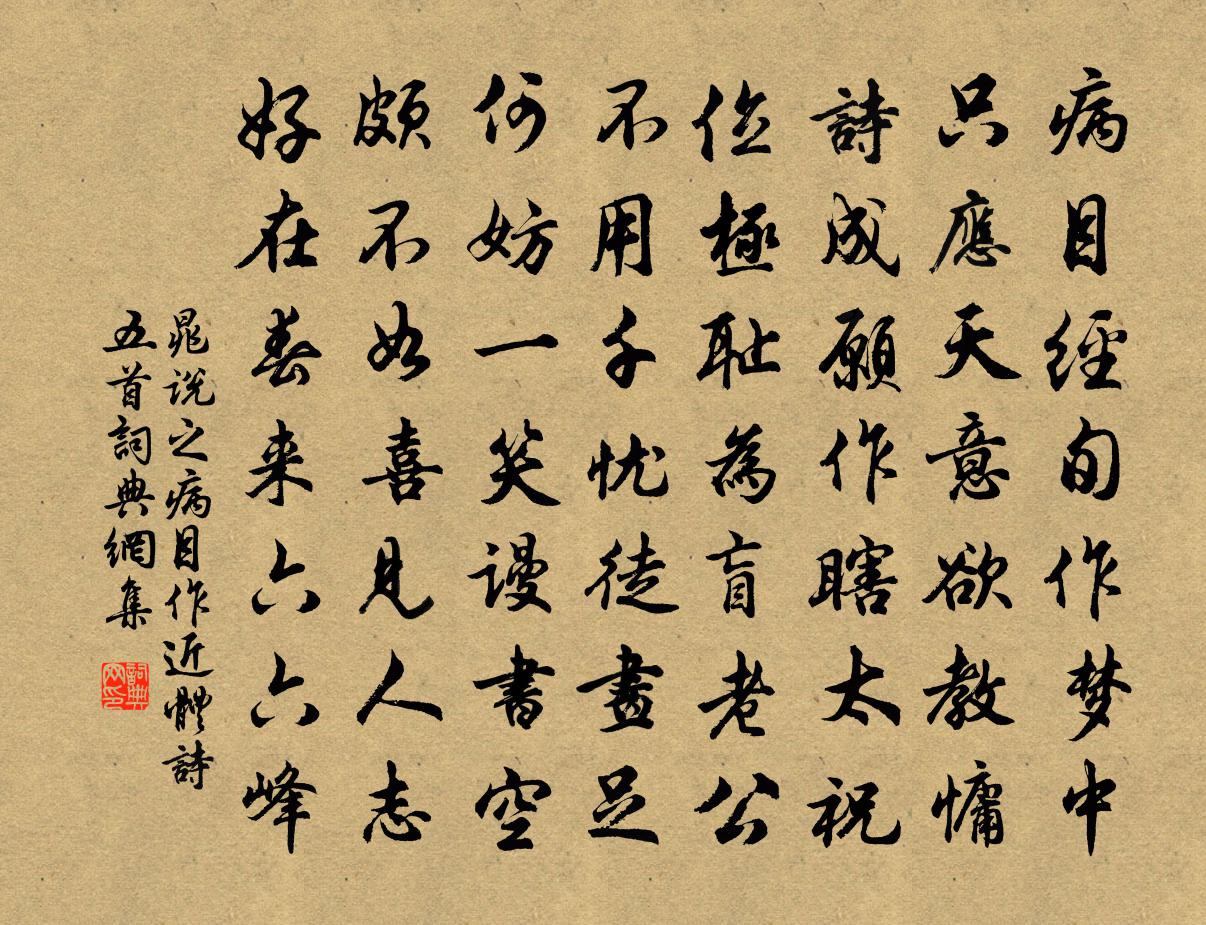 病目經旬作梦中
只應天意欲教慵
詩成願作瞎太祝
位極耻為盲老公
不用千忧徒畫足
何妨一笑谩書空
頗不如喜見人志
好在春来六六峰
晁说之病目作近體詩
五首詞典網集
詞典
网印